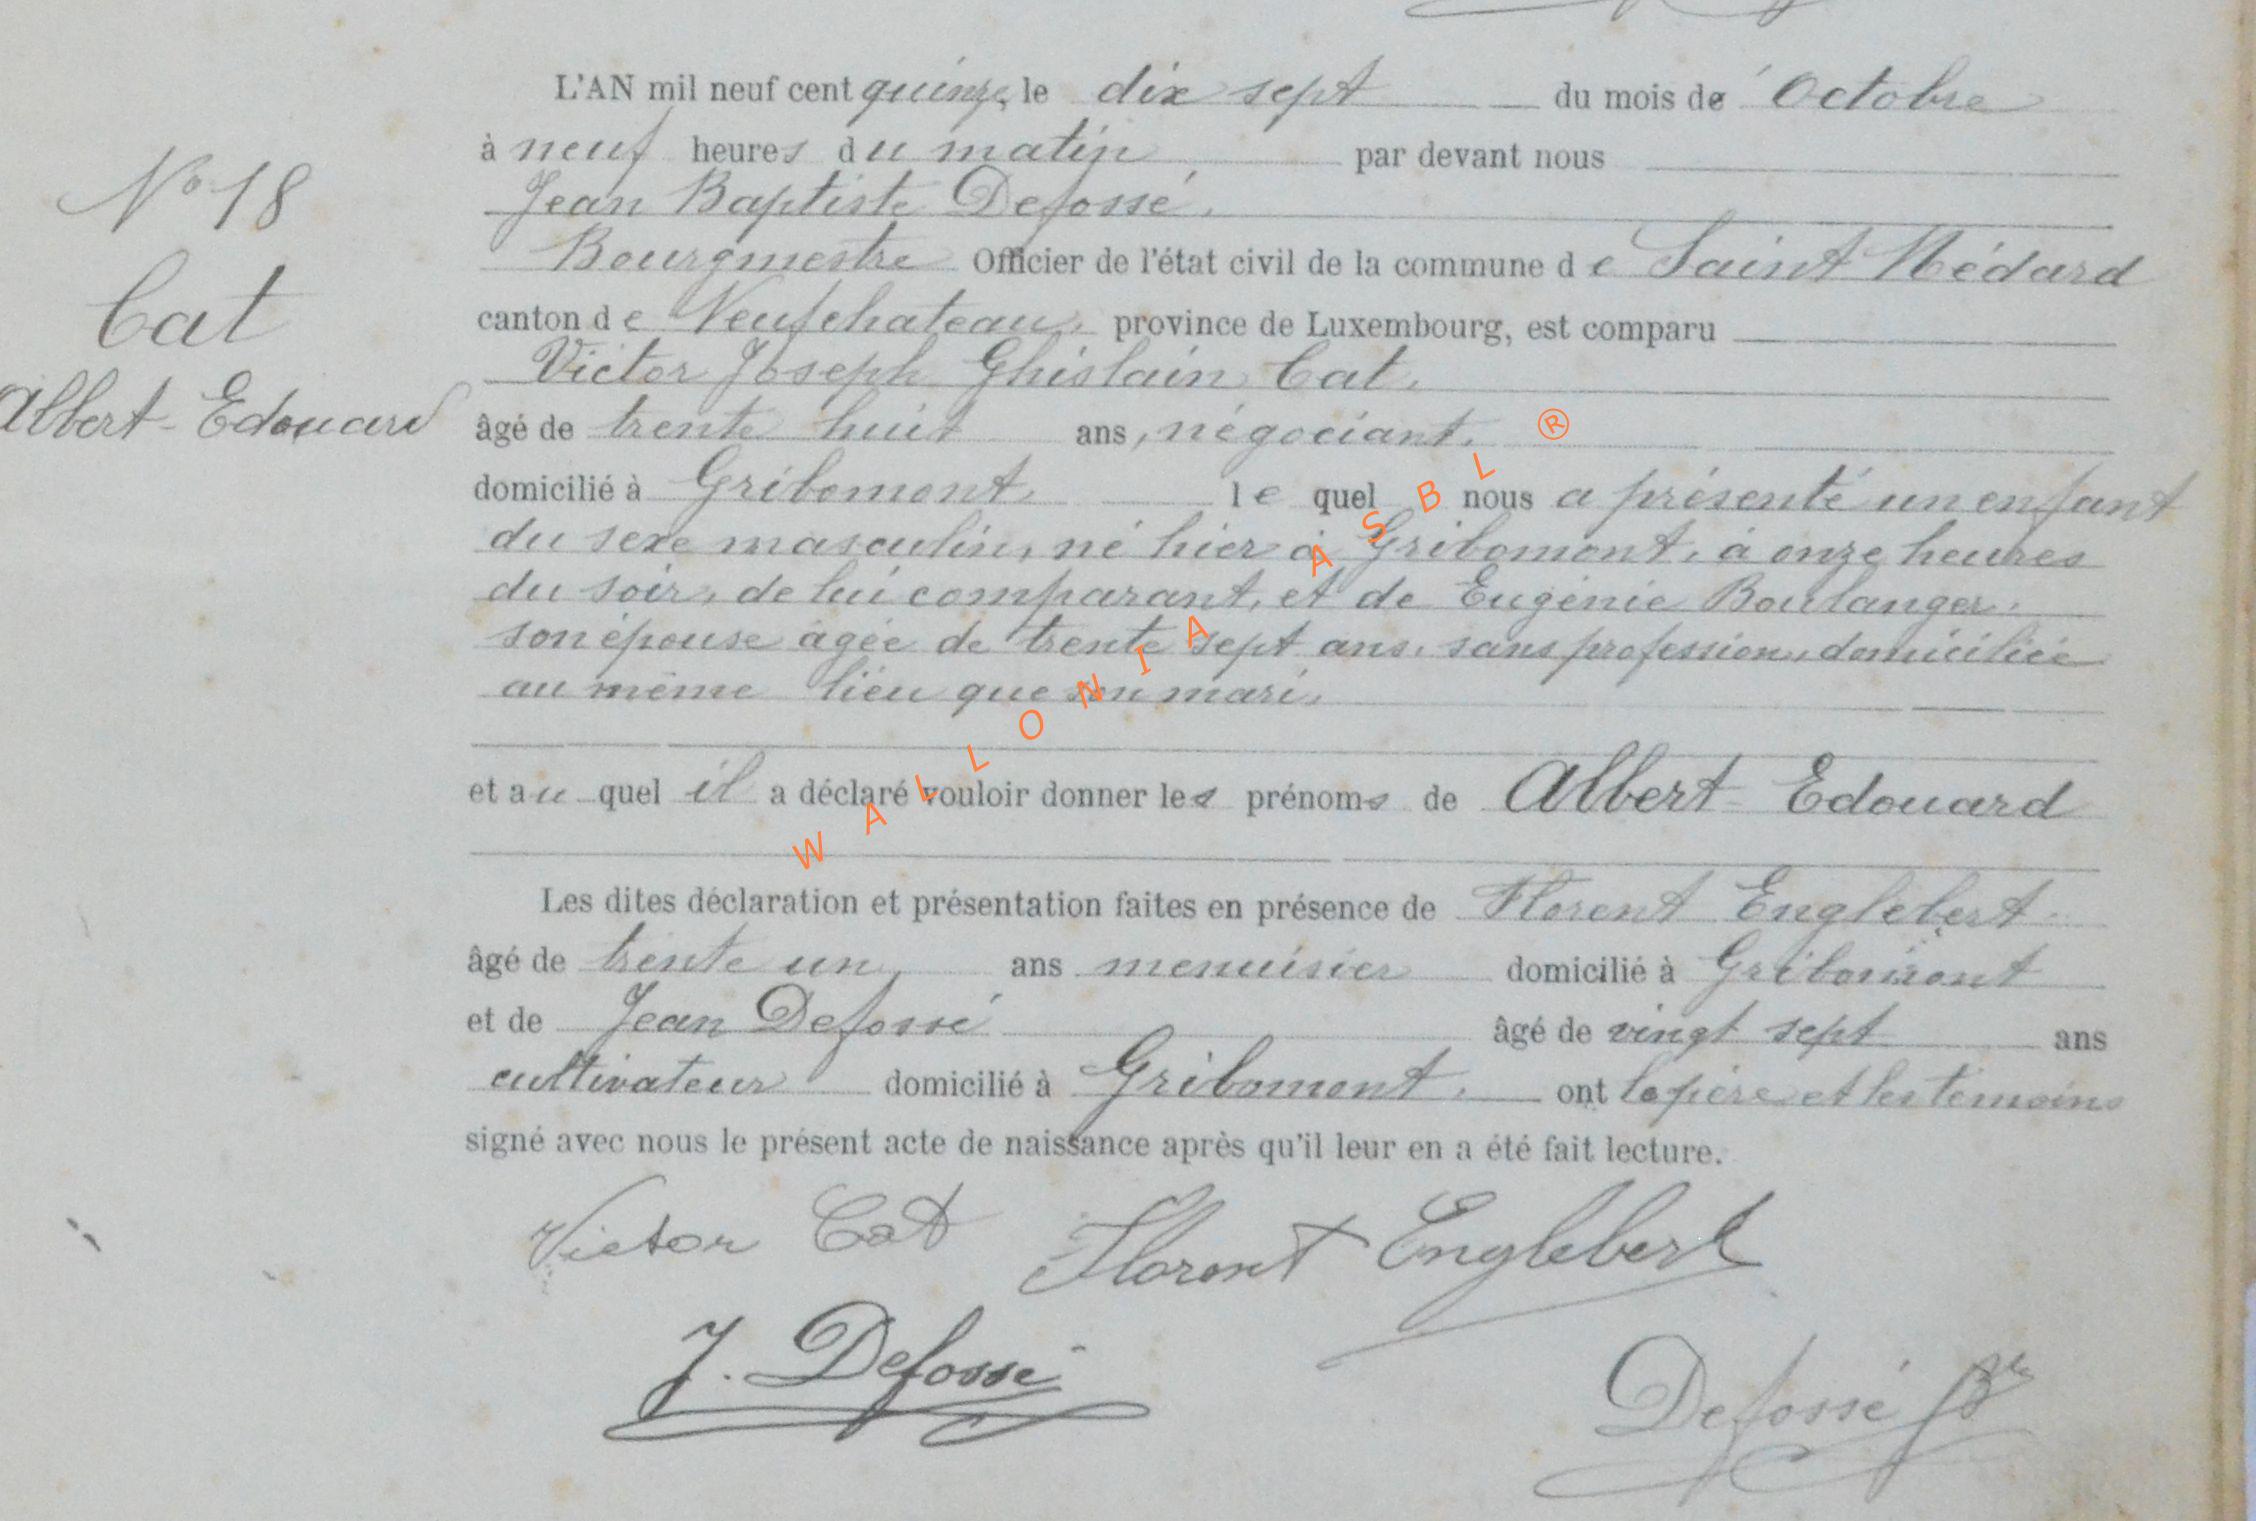 L'AN mil neuf cent quinze, le dix sept du mois de Octobre
à neuf heures du matin par devant nous
Jean Baptiste Defossé,
Bourgmestre Officier de l'état civil de la commune de Saint Médard
canton de Neufchateau, province de Luxembourg, est comparu
Victor Joseph Ghislain Cat,
âgé de trente huit ans, négociant,
domicilié à Gribomont, le quel nous a présenté un enfant
du sexe masculin, né hier à Gribomont, à onze heures
du soir, de lui comparant, et de Eugénie Boulanger,
son épouse agée de trente sept ans, sans profession, domiciliée
au même lieu que son mari,
et au quel il a déclaré vouloir donner les prénoms de Albert-Edouard
Les dites déclaration et présentation faites en présence de Florent Englebert
âgé de trente un, ans menuisier domicilié à Gribomont
et de Jean Defossé âgé de vingt sept ans
cultivateur domicilié à Gribomont, ont le père et les témoins
signé avec nous le présent acte de naissance après qu'il leur en a été fait lecture.
Victor Cat Florent Englebert
J. Defossé
Defossé
N° 18
Cat
Albert-Edouard
WALLONIA ASBL ®